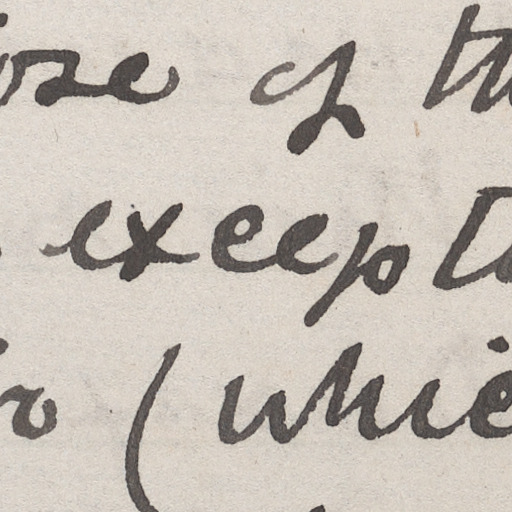 ose of th
excepti
(whic